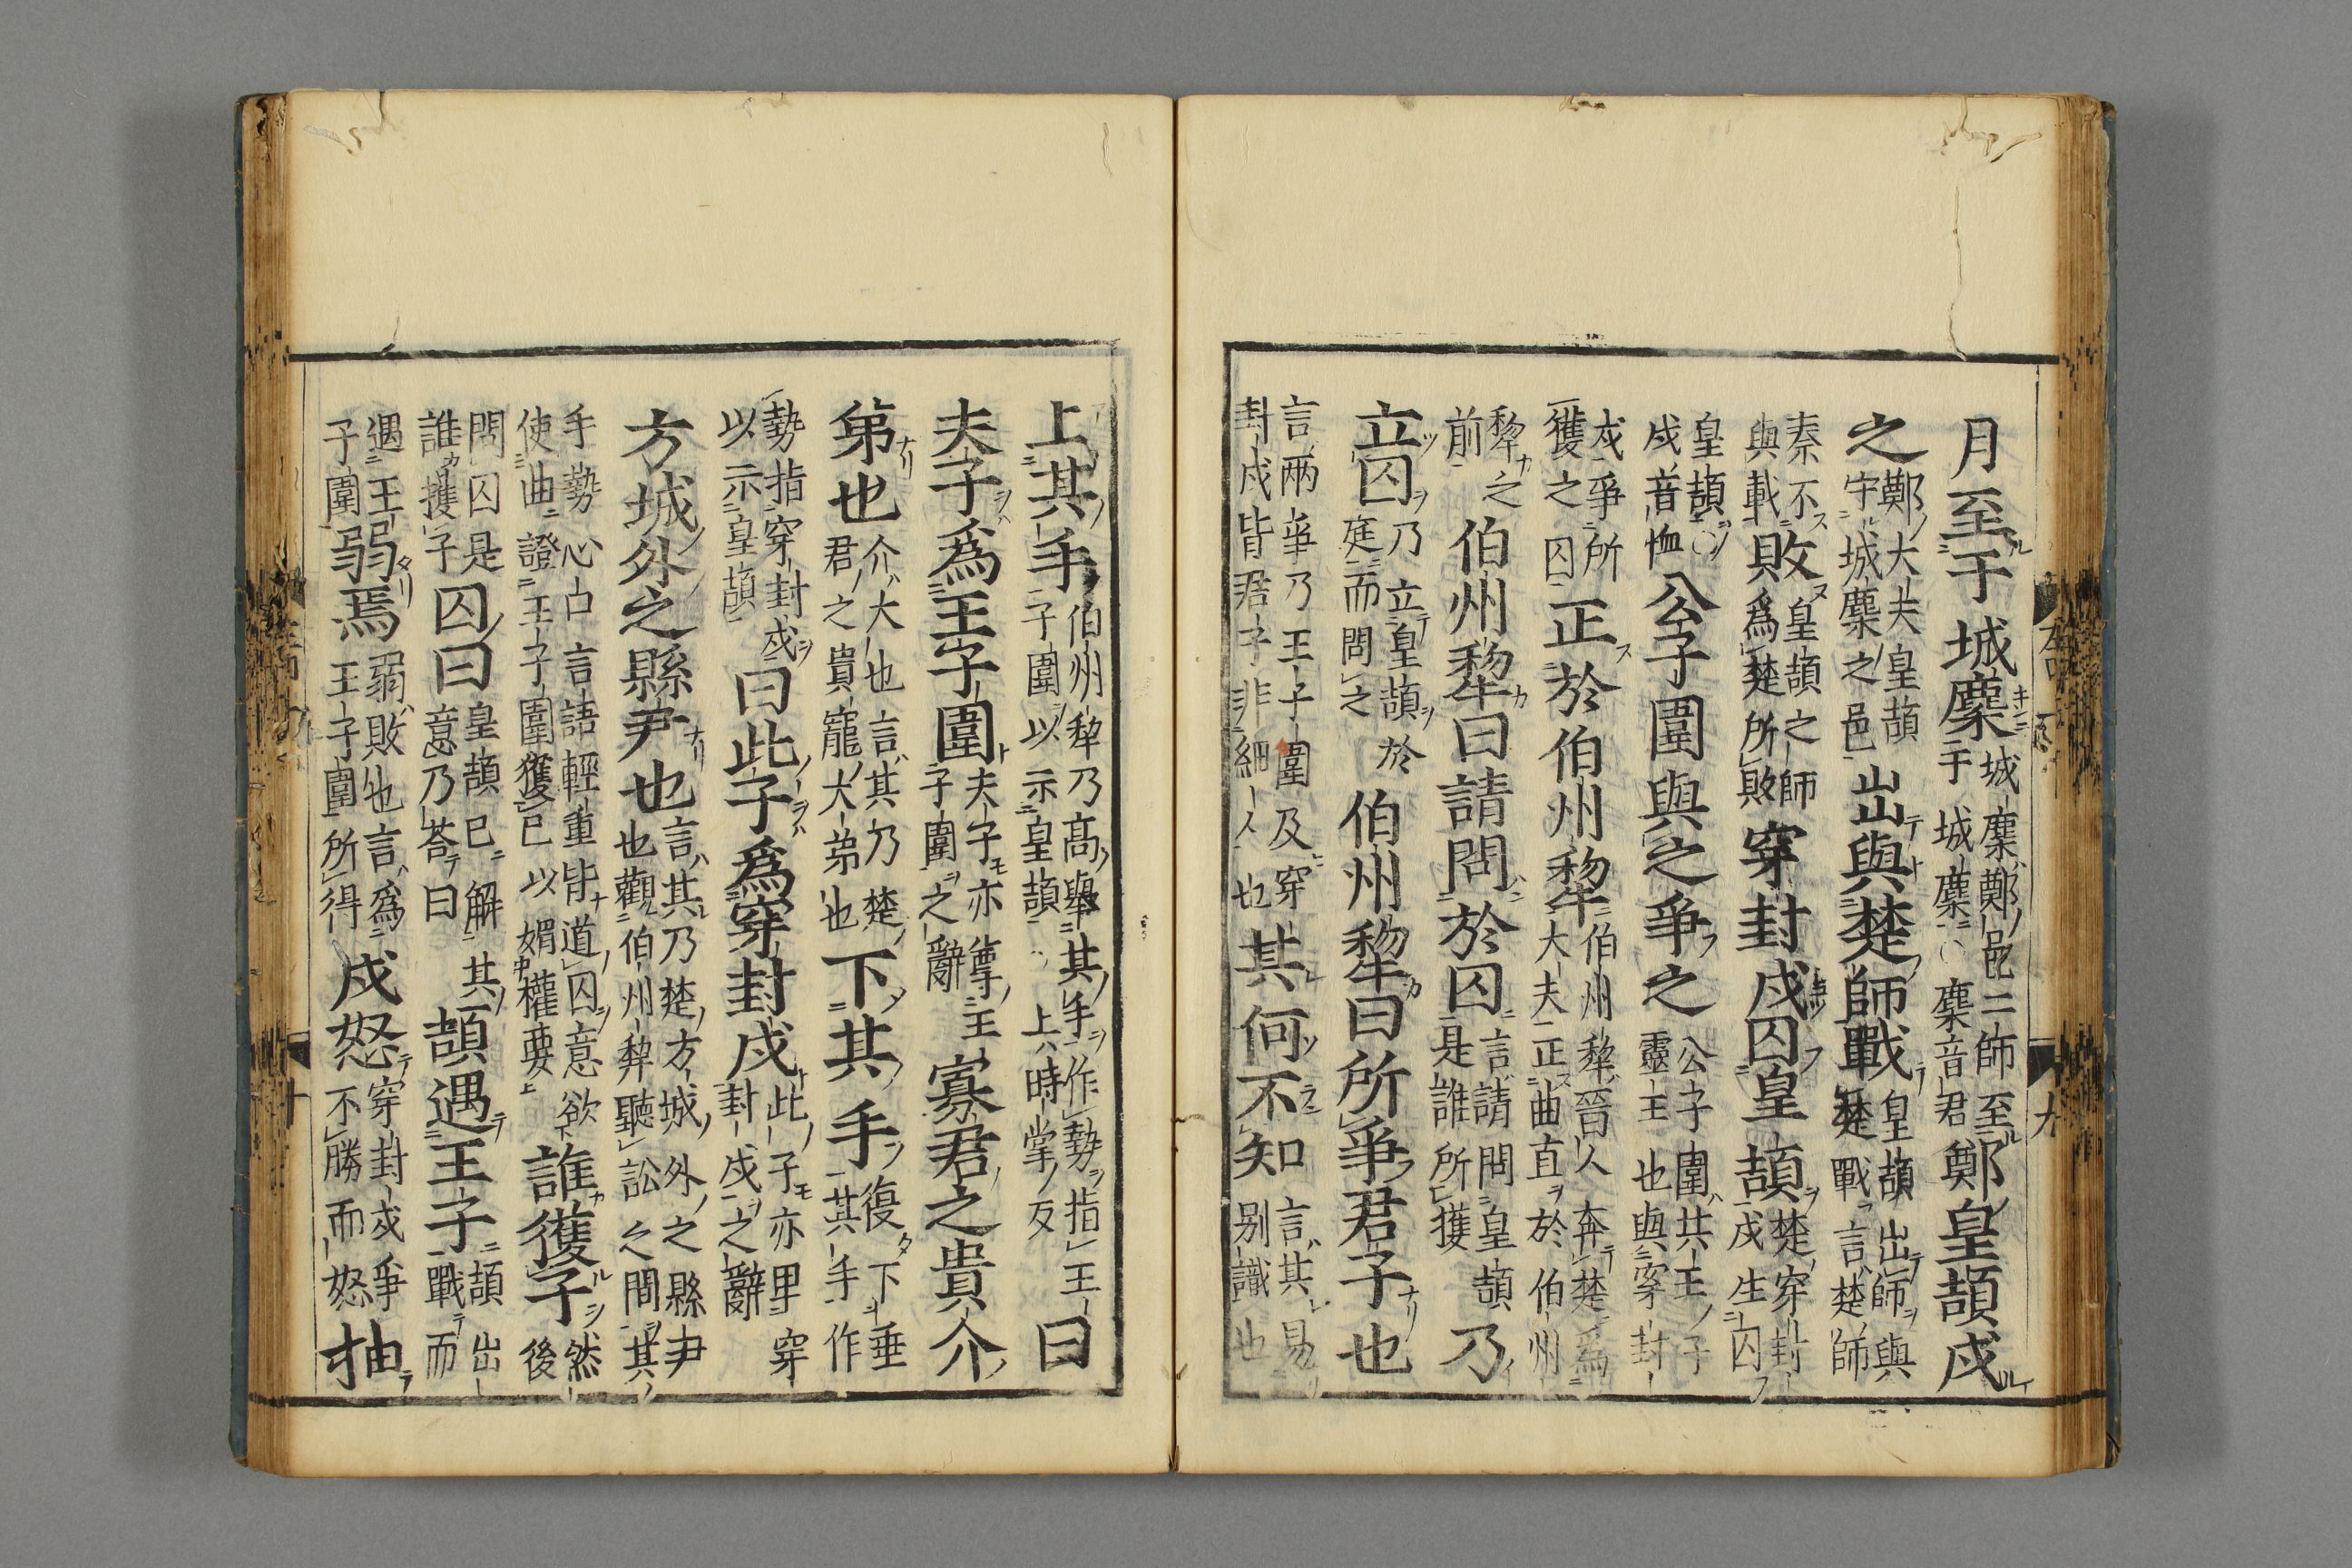 月至于城麇城麇鄭邑二師至于城麇〇麇音君鄭皇頡戍
之鄭大夫皇頡守城麇之邑出與楚師戰皇頡出師與楚戰言楚師
秦不與載敗皇頡之師爲楚所敗穿封戍囚皇頡楚穿封戍生囚
皇頡〇戍音恤公子圍與之爭之公子圍共王子靈王也與穿封
戍爭所獲之囚正於伯州犂伯州犂晉人奔楚爲大夫正曲直於伯州
犂之前伯州犂曰請問於囚言請問皇頡是誰所獲乃
立囚乃立皇頡於庭而問之伯州犂曰所爭君子也
言兩爭乃王子圍及穿封戍皆君子非細人也其何不知言其易別識也
上其手伯州犂乃高舉其手作勢指王子圍以示皇頡上時掌反曰
夫子爲王子圍夫子亦尊王子圍之辭寡君之貴介
弟也介大也言其乃楚君之貴寵大弟也下其手復下垂其手作
勢指穿封戍以示皇頡曰此子爲穿封戍此子亦卑穿封戍之辭
方城外之縣尹也言其乃楚方城外之縣尹也觀伯州犂聽訟之間其
手勢心口言語輕重皆道囚意欲使曲證王子圍獲已以媚權要誰獲子然後
問囚是誰獲子囚曰皇頡已解其意乃荅曰頡遇王子頡出戰而
遇王子圍弱焉弱敗也言爲王子圍所得戍怒穿封戍爭不勝而怒抽
九
十